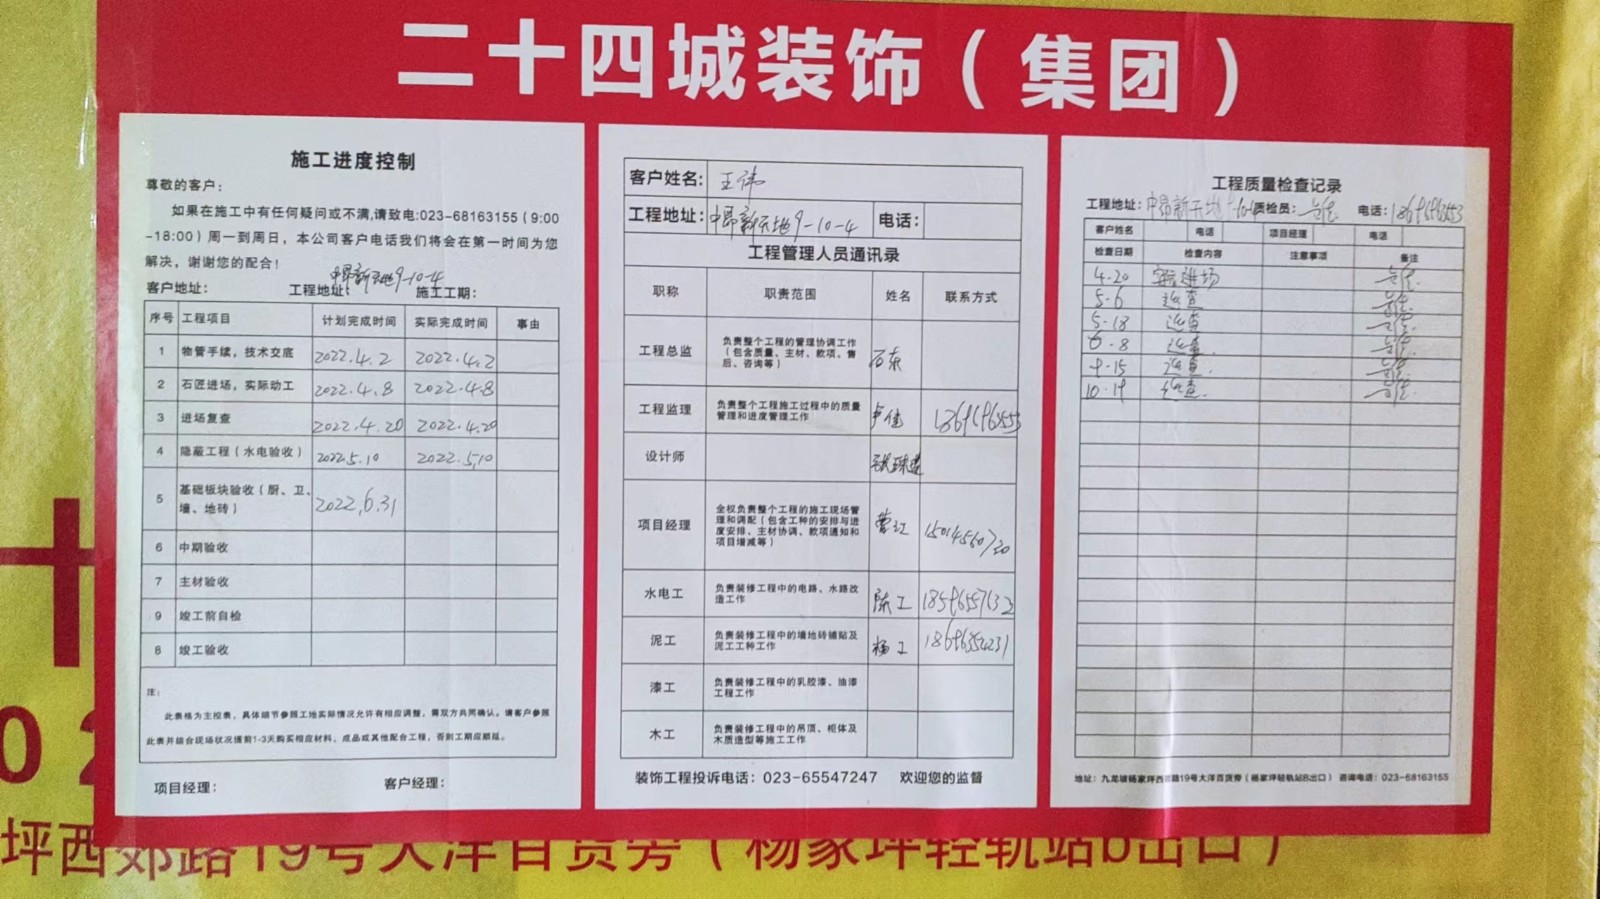 二十四城装饰（集团）
施工进度控制
尊敬的客户：
如果在施工中有任何疑问或不满,请致电:023-68163155（9:00
-18:00）周一到周日，本公司客户电话我们将会在第一时间为您
解决，谢谢您的配合！
客户地址： 工程地址：中昂新天地9-10-4 施工工期：
序号 工程项目 计划完成时间 实际完成时间 事由
1 物管手续，技术交底 2022.4.2 2022.4.2
2 石匠进场，实际动工 2022.4.8 2022.4.8
3 进场复查 2022.4.20 2022.4.20
4 隐蔽工程（水电验收） 2022.5.10 2022.5.10
5 基础板块验收（厨、卫、
墙、地砖） 2022.6.31
6 中期验收
7 主材验收
9 竣工前自检
8 竣工验收
注：
此表格为主控表，具体细节参照工地实际情况允许有相应调整，需双方共同确认。请客户参照
此表并结合现场状况提前1-3天购买相应材料、成品或其他配合工程，否则工期应顺延。
项目经理： 客户经理：
客户姓名: 王伟
工程地址: 中昂新天地9-10-4 电话:
工程管理人员通讯录
职称 职责范围 姓名 联系方式
工程总监 负责整个工程的管理协调工作
（包含质量、主材、款项、售
后、咨询等） 石东
工程监理 负责整个工程施工过程中的质量
管理和进度管理工作 卢佳
设计师
项目经理 全权负责整个工程的施工现场管
理和调配（包含工种的安排与进
度安排、主材协调、款项通知和
项目增减等）
水电工 负责装修工程中的电路、水路改
造工作 陈工
泥工 负责装修工程中的墙地砖铺贴及
泥工工种工作 杨工
漆工 负责装修工程中的乳胶漆、油漆
工程工作
木工 负责装修工程中的吊顶、柜体及
木质造型等施工工作
装饰工程投诉电话：023-65547247 欢迎您的监督
工程质量检查记录
工程地址: 中昂新天地 质检员: 电话:
客户姓名 电话 项目经理 电话
检查日期 检查内容 注意事项 备注
4.20 进场
5.6 巡查
5.18 巡查
6.8 巡查
9.15 巡查
10.19 巡查
地址：九龙坡杨家坪西郊路19号大洋百货旁（杨家坪轻轨站B出口） 咨询电话：023-68163155
坪西郊路19号大洋百货旁（杨家坪轻轨站b出口）